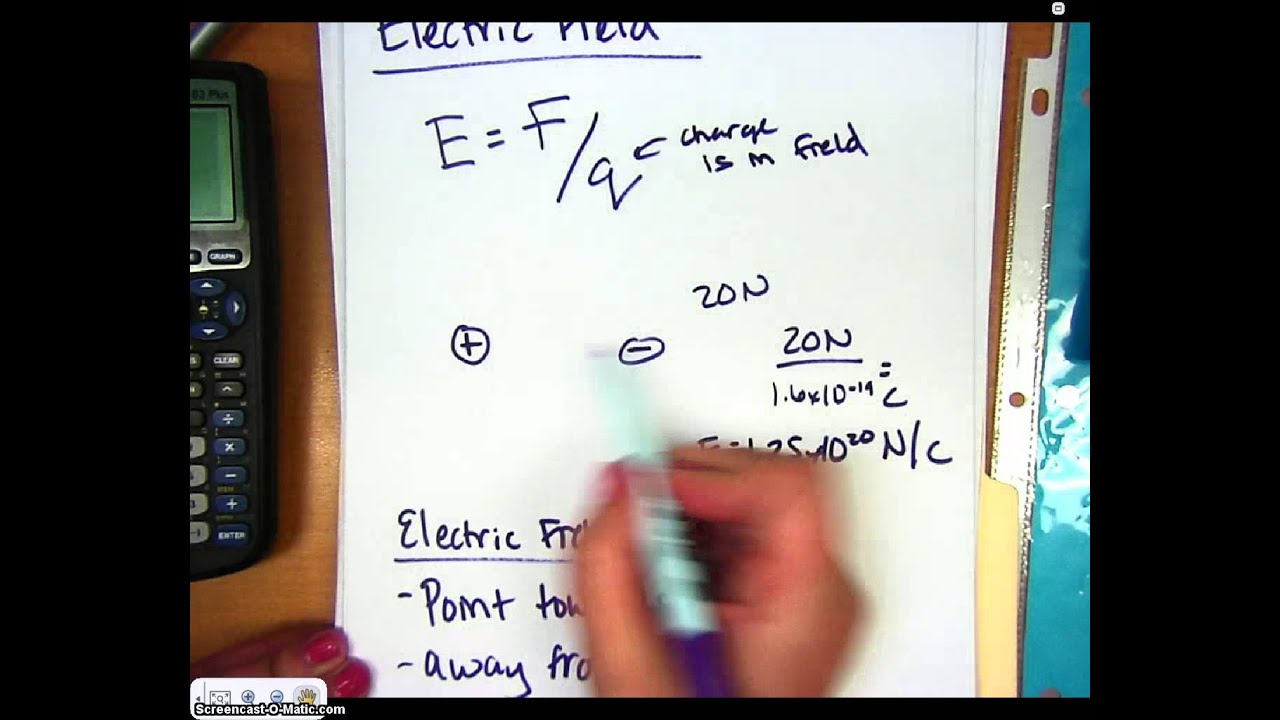 Electric Field
E = F/q ← charge
is in field
20N
+
-
20N
1.6x10⁻¹⁹ C =
E = 1.25x10²⁰ N/C
Electric
- Point
- away
83 Plus
GRAPH
CLEAR
ENTER
Screencast-O-Matic.com